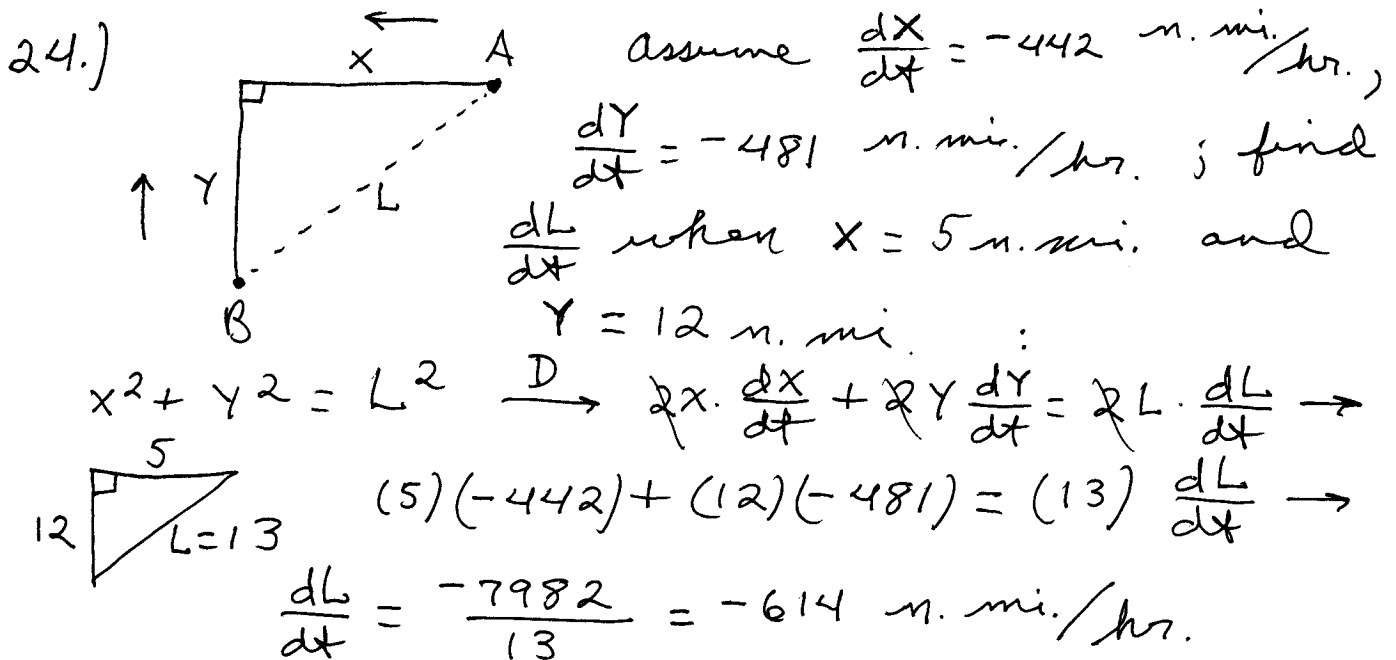 24.) ← X A assume dX/dt = -442 n. mi./hr.,
↑ Y L dY/dt = -481 n. mi./hr. ; find
dL/dt when X = 5 n. mi. and
B Y = 12 n. mi. :
X² + Y² = L² D→ 2X · dX/dt + 2Y dY/dt = 2L · dL/dt →
5 12 L=13 (5)(-442) + (12)(-481) = (13) dL/dt →
dL/dt = -7982/13 = -614 n. mi./hr.